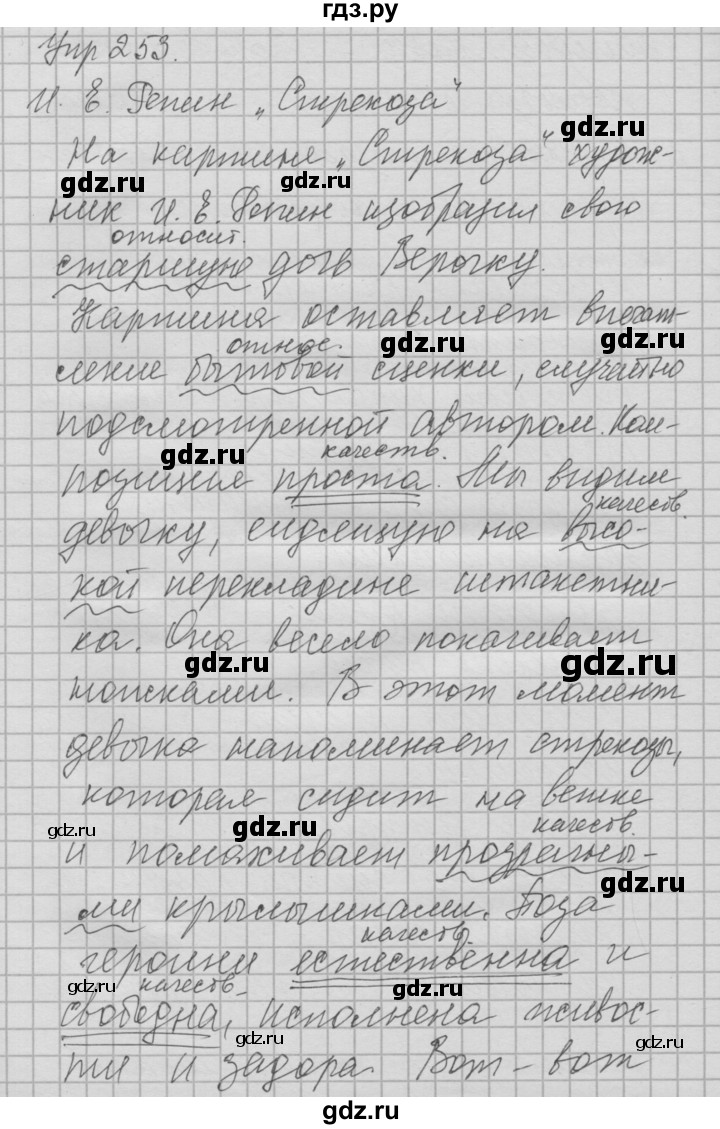 гдз.ру
Упр 253.
И. Е. Репин „Стрекоза"
gdz.ru
На картине „Стрекоза" худож-
gdz.ru gdz.ru
ник И. Е. Репин изобразил свою
относит.
старшую дочь Верочку.
gdz.ru
Картина оставляет впечат-
относ. gdz.ru gdz.ru
ление бытовой сценки, случайно
подсмотренной автором. Ком-
gdz.ru качеств.
позиция проста. Мы видим
качеств.
девочку, сидящую на высо-
gdz.ru
кой перекладине штакетни-
ка. Она весело покачивает
gdz.ru gdz.ru
ножками. В этот момент
девочка напоминает стрекозу,
которая сидит на ветке
gdz.ru gdz.ru качеств.
и помахивает прозрачны-
gdz.ru
ми крылышками. Поза
качеств.
героини естественна и
gdz.ru качеств. gdz.ru
свободна, исполнена живос-
gdz.ru gdz.ru
ти и задора. Вот-вот
gdz.ru